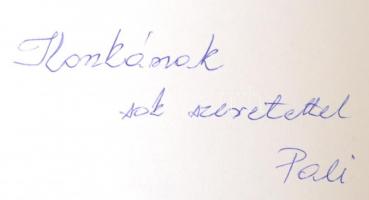 Konkának
sok szeretettel
Pali